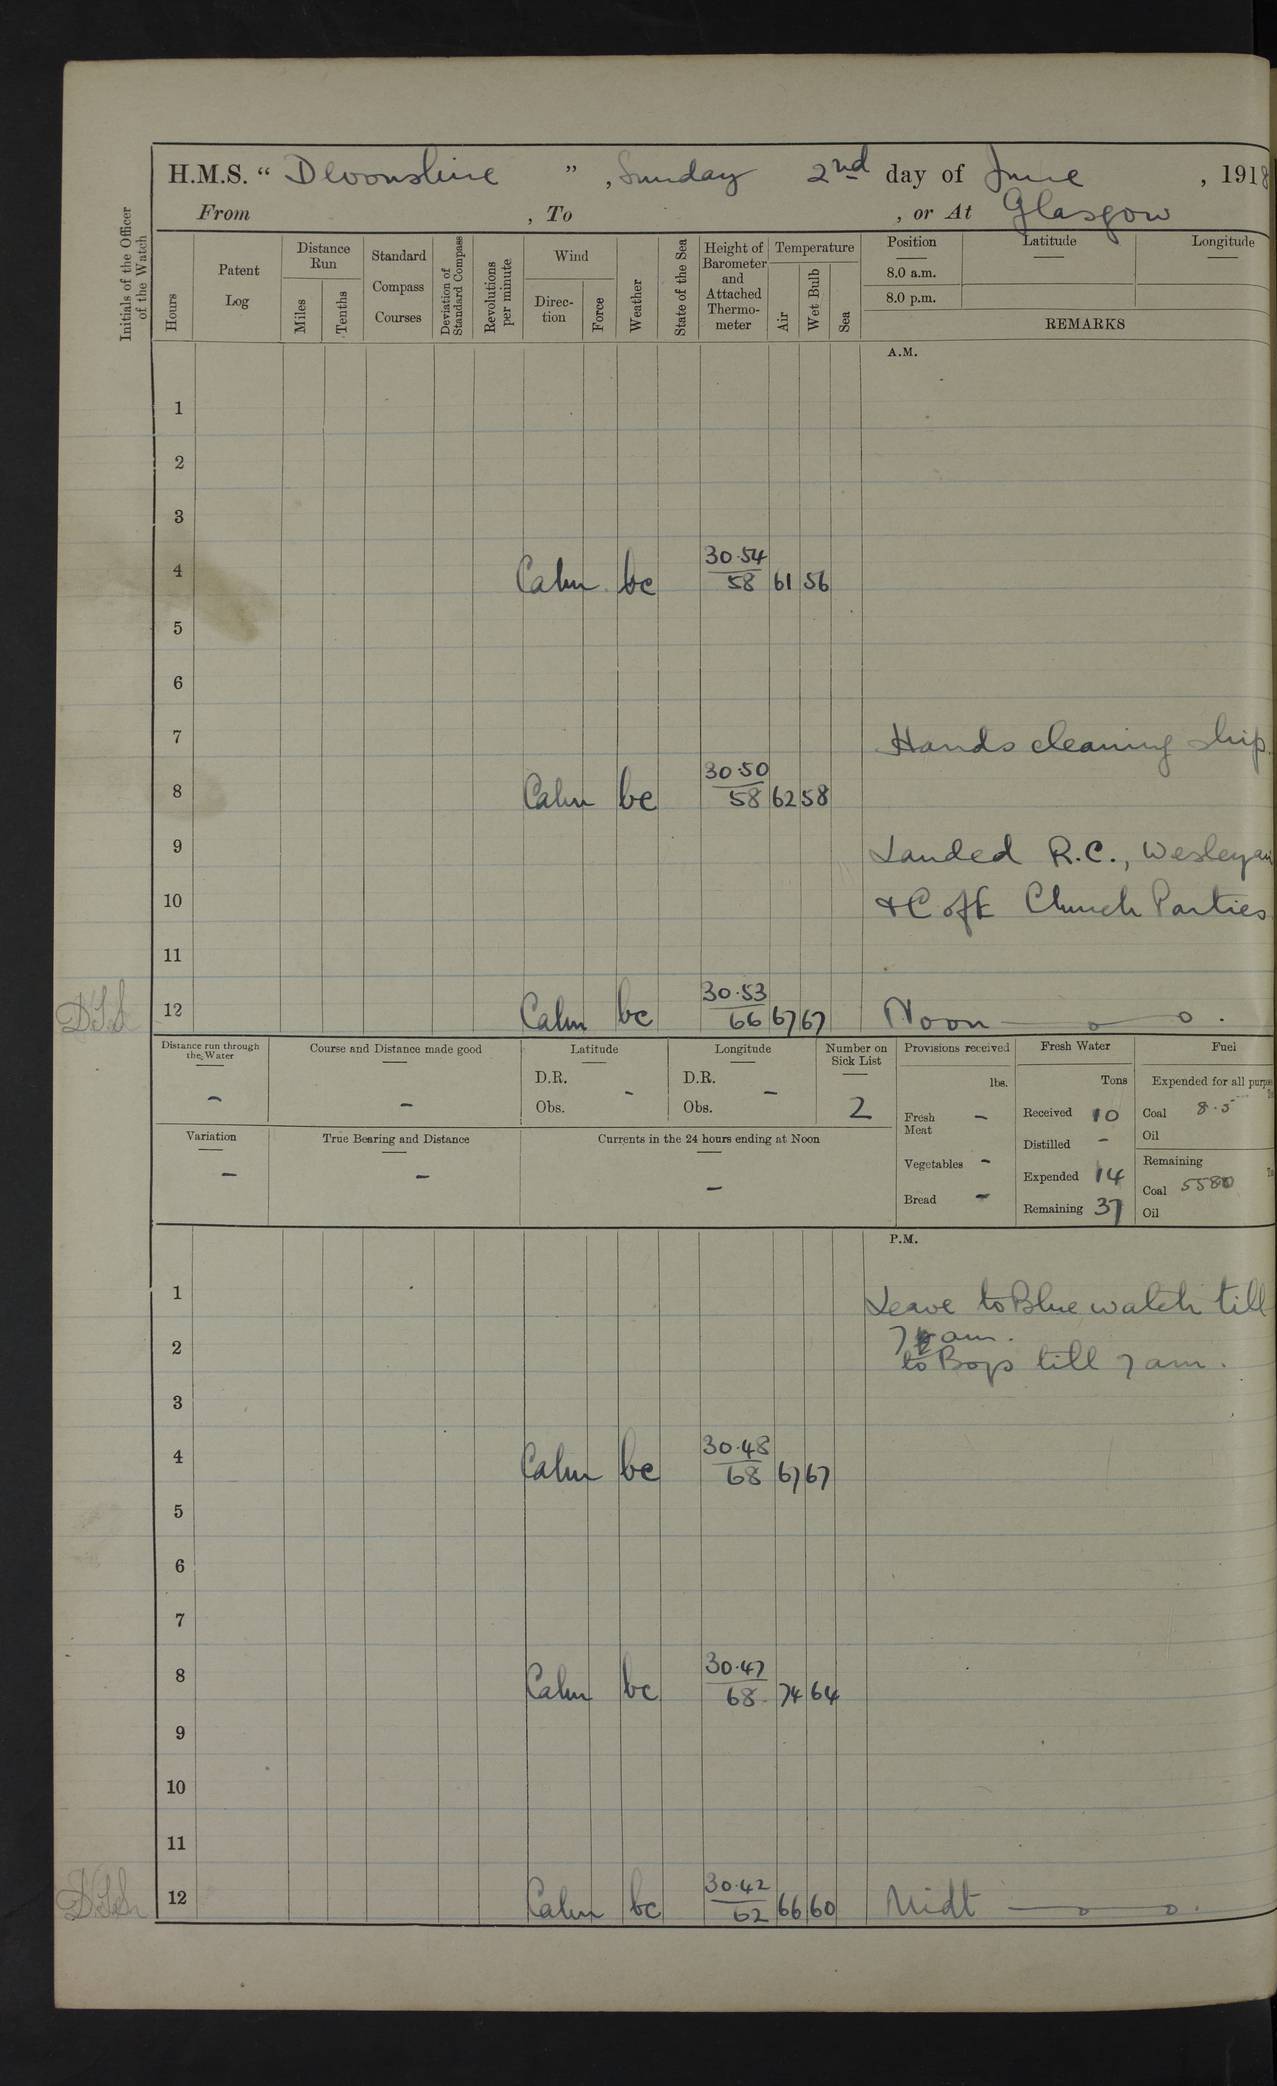 H.M.S. “ Devonshire ” , Sunday 2nd day of June , 1918
From , To , or At Glasgow
Initials of the Officer of the Watch
Hours
Patent Log
Distance Run
Miles
Tenths
Standard Compass Courses
Deviation of Standard Compass
Revolutions per minute
Wind
Direc-tion
Force
Weather
State of the Sea
Height of Barometer and Attached Thermo-meter
Temperature
Air
Wet Bulb
Sea
Position Latitude Longitude
8.0 a.m.
8.0 p.m.
REMARKS
A.M.
1
2
3
4 Calm bc 30.54/58 61 56
5
6
7 Hands cleaning ship.
8 Calm bc 30.50/58 62 58
9 Landed R.C., Wesleyan
10 + C of E Church Parties
11
12 Calm bc 30.53/66 67 67 Noon
Distance run through the Water -
Course and Distance made good -
Latitude
D.R. -
Obs.
Longitude
D.R. -
Obs.
Number on Sick List
2
Variation -
True Bearing and Distance -
Currents in the 24 hours ending at Noon
-
Provisions received
lbs.
Fresh Meat -
Vegetables -
Bread -
Fresh Water
Tons
Received 10
Distilled -
Expended 14
Remaining 37
Fuel
Expended for all purpo
Coal 8.5
Oil
Remaining
Coal 5580
Oil
P.M.
1 Leave to Blue watch till
2 7 am.
to Boys till 7 am.
3
4 Calm bc 30.48/68 67 67
5
6
7
8 Calm bc 30.47/68 74 64
9
10
11
12 Calm bc 30.42/62 66 60 Midt